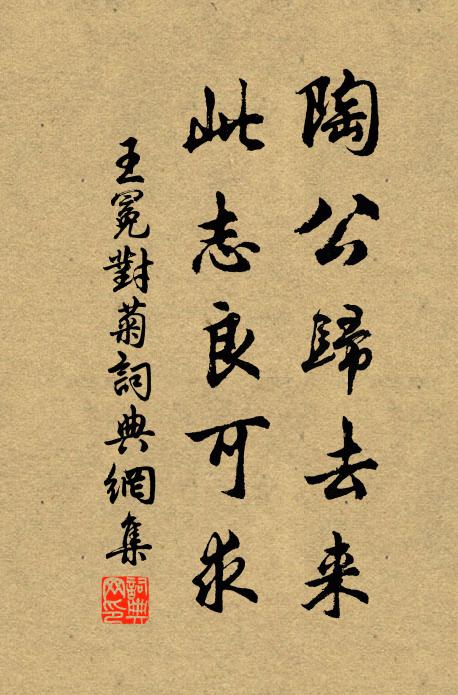 陶公歸去来
此志良可求
王冕對菊詞典網集
詞典網印